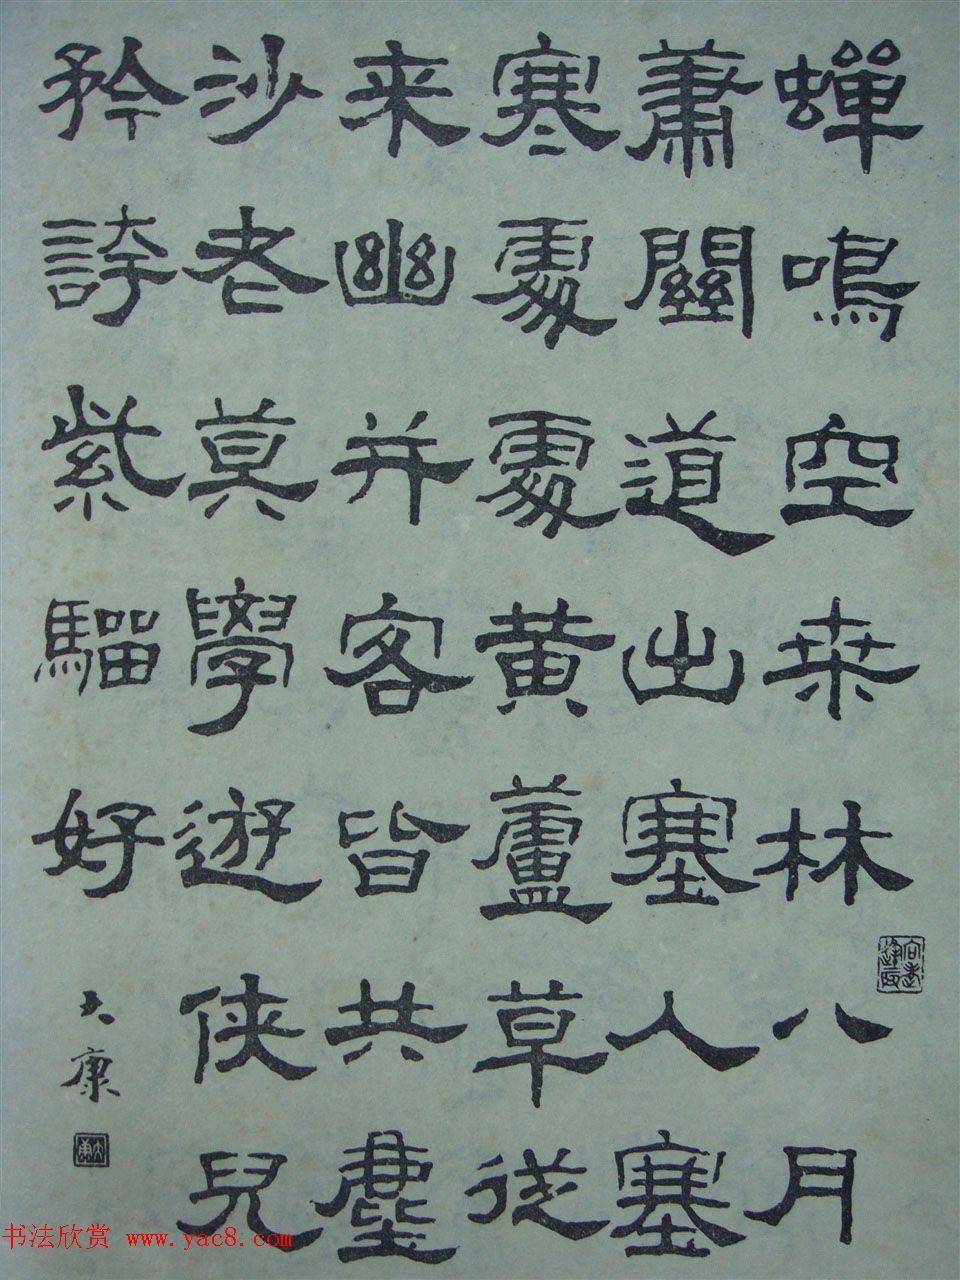 蟬鳴空桒林八月
蕭關道出塞入塞
寒處處黄蘆草從
来幽并客皆共塵
沙老莫學遊俠兒
矜誇紫騮好
大康
书法欣赏 www.yac8.com